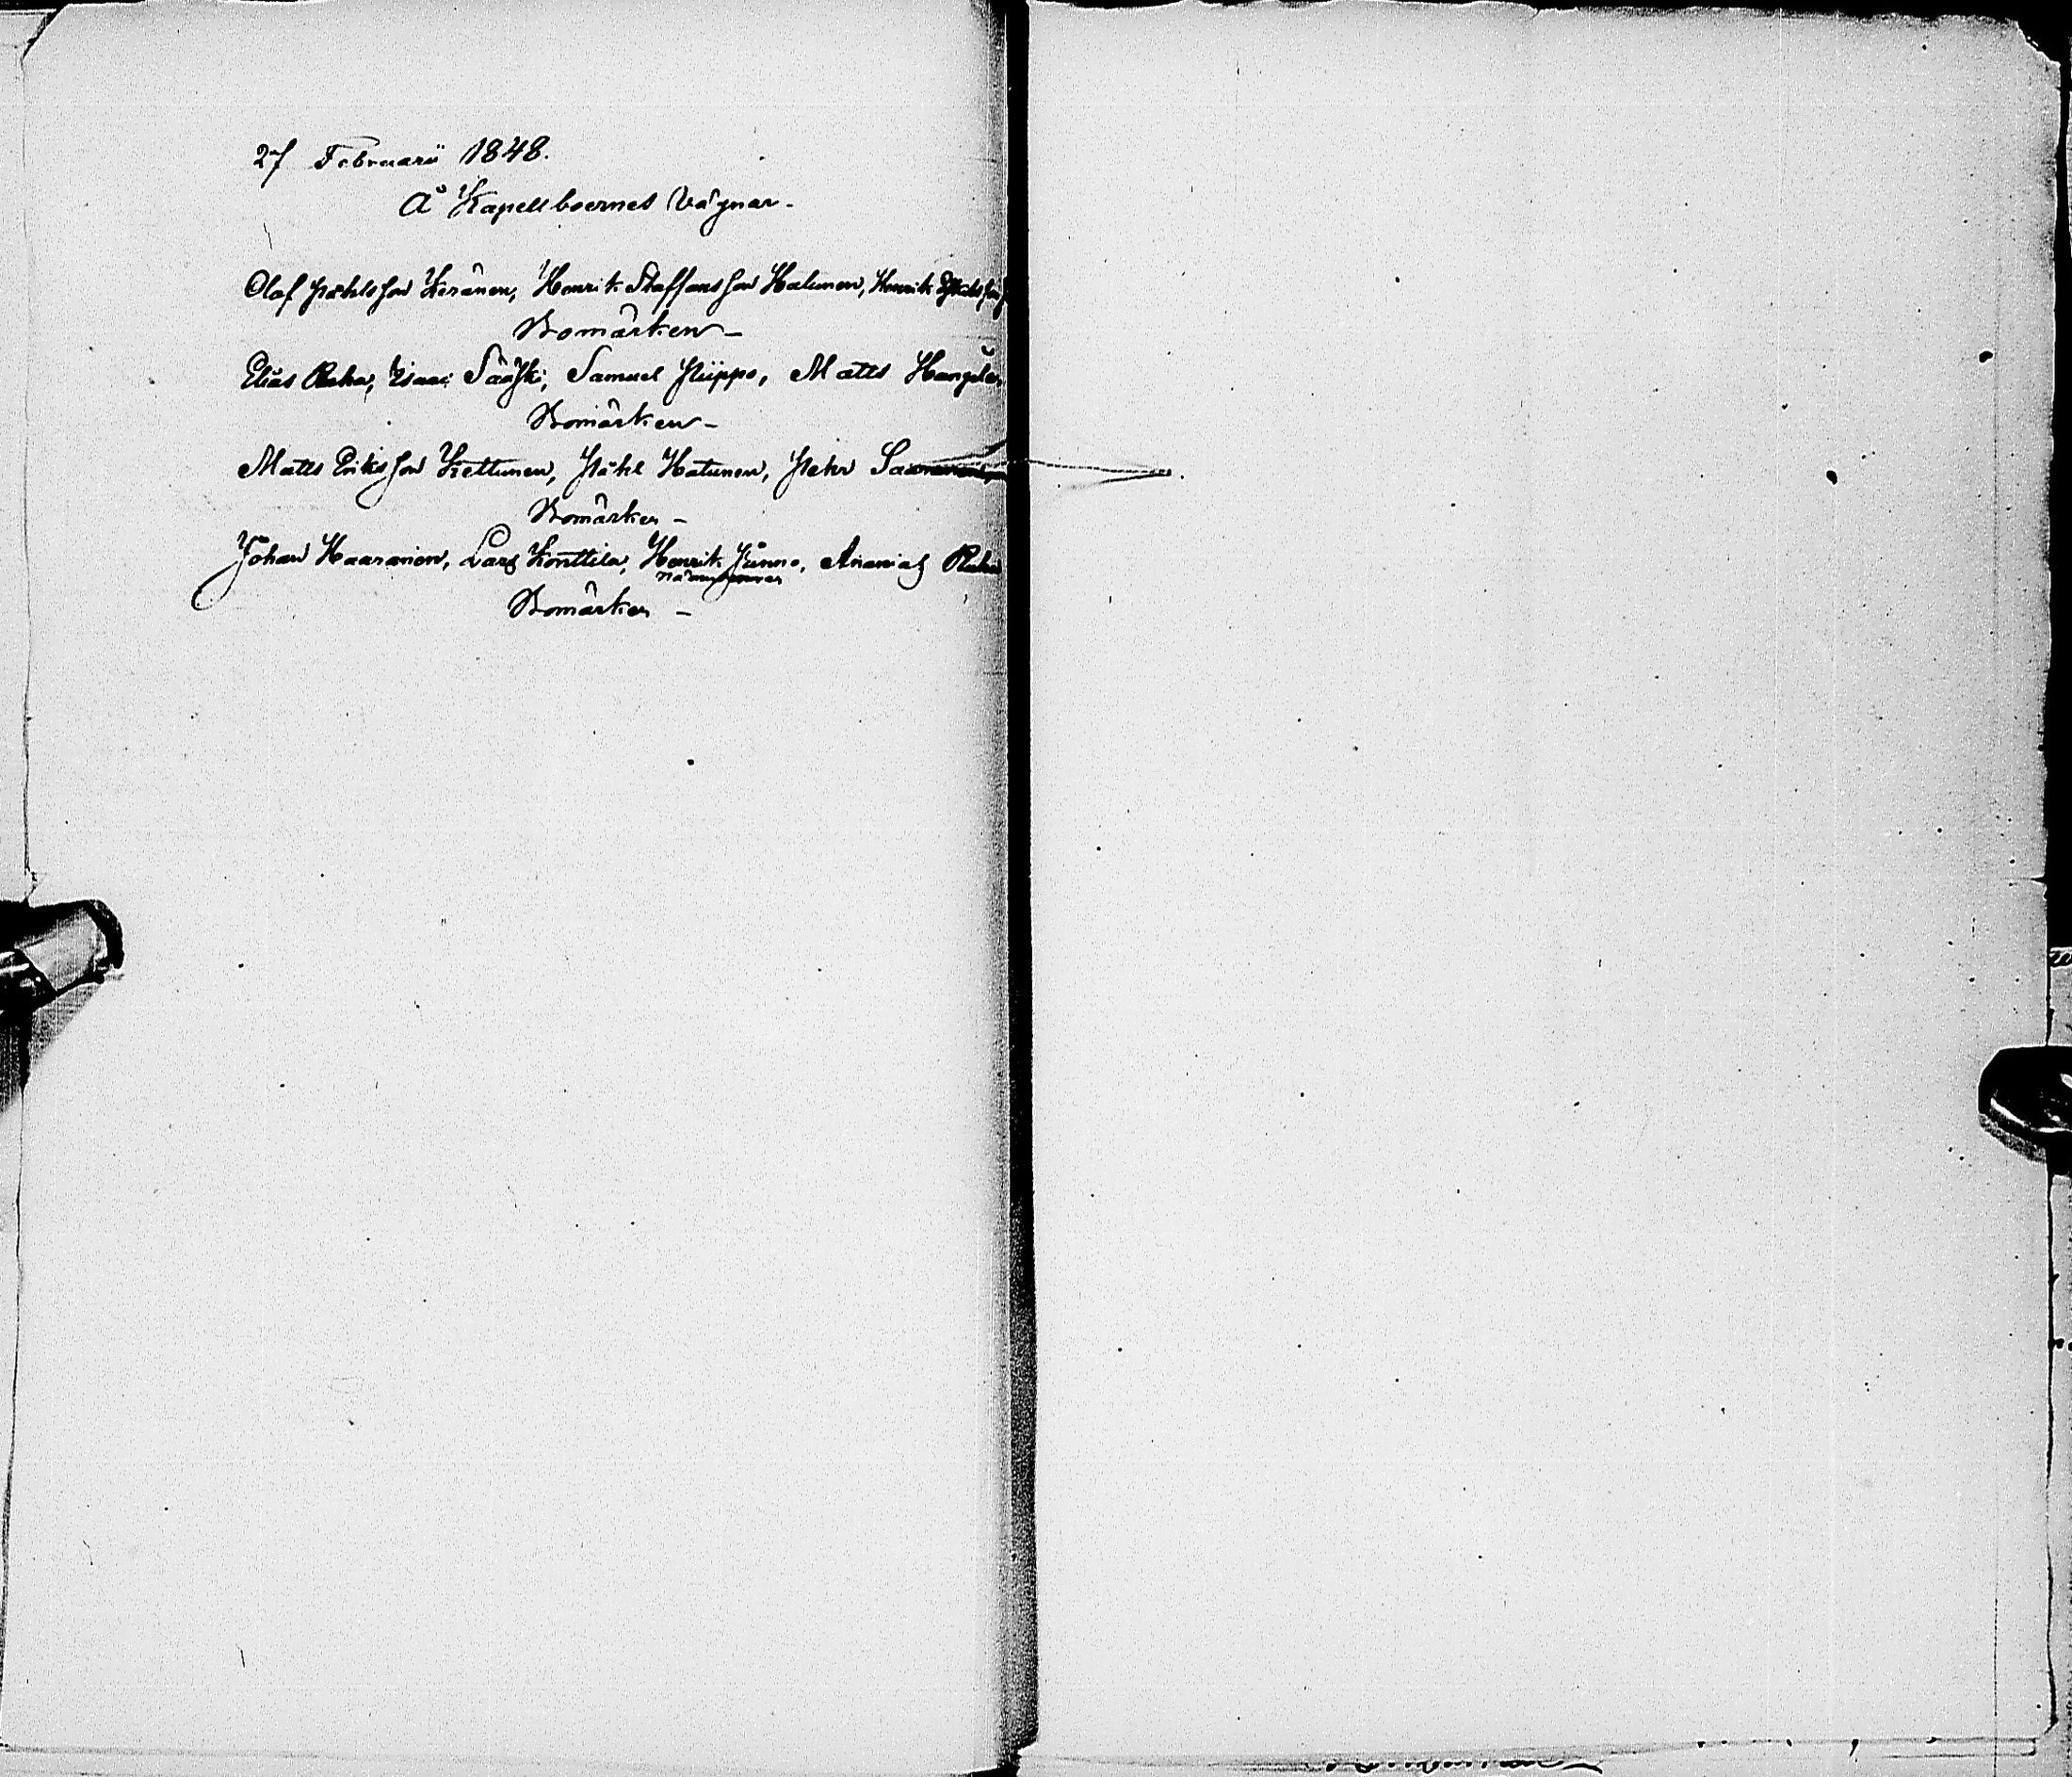 27 Februarii 1848.
Å Kapellboernes Vägnar.
Olaf Påhlsson Keränen, Henrik Staffansson Halunen, Henrik
Bomärken
Elias Ruha, Isaac Sääski, Samuel Piippo, Matts
Bomärken
Matts Eriksson Kettunen, Påhl Hatunen, Pehr
Bomärken
Johan Haaranen, Lars Konttila, Henrik Juuno, Ananias Ruha
nämndeman
Bomärken